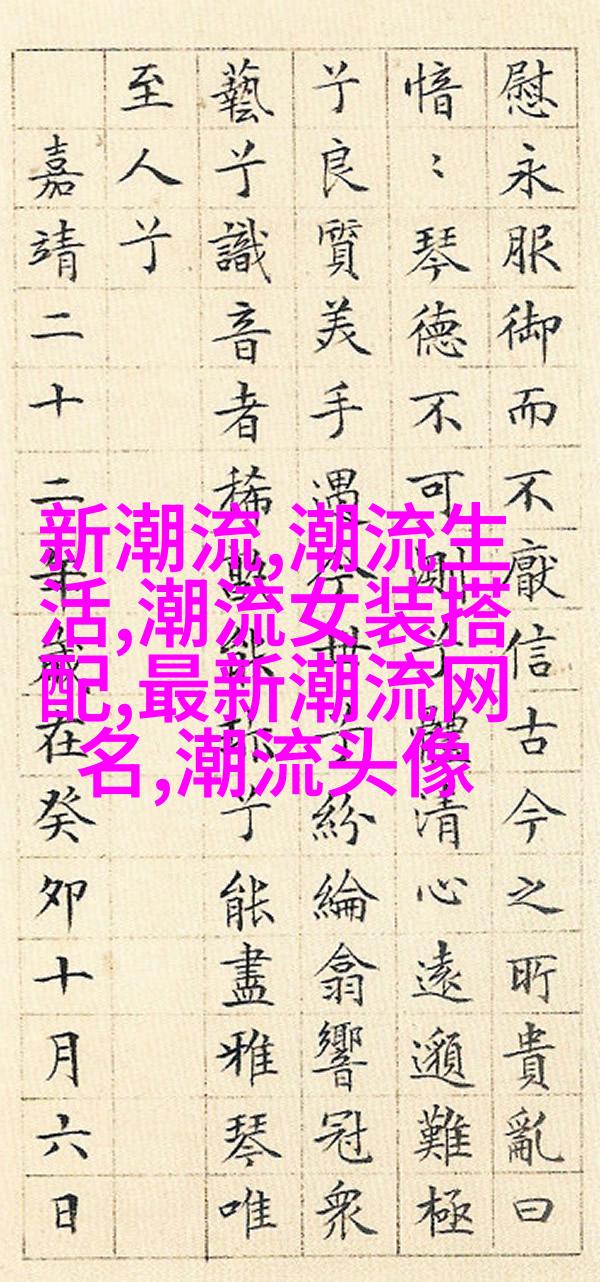 慰永服御而不厭信古今之所貴亂曰
愔〻琴德不可測兮體清心遠邈難極
兮良質美手遇今世兮紛綸翕響冠衆
藝兮識音者稀孰能珍兮能盡雅琴唯
至人兮
嘉靖二十二年歲在癸卯十月六日
新潮流,潮流生
活,潮流女装搭
配,最新潮流网
名,潮流头像